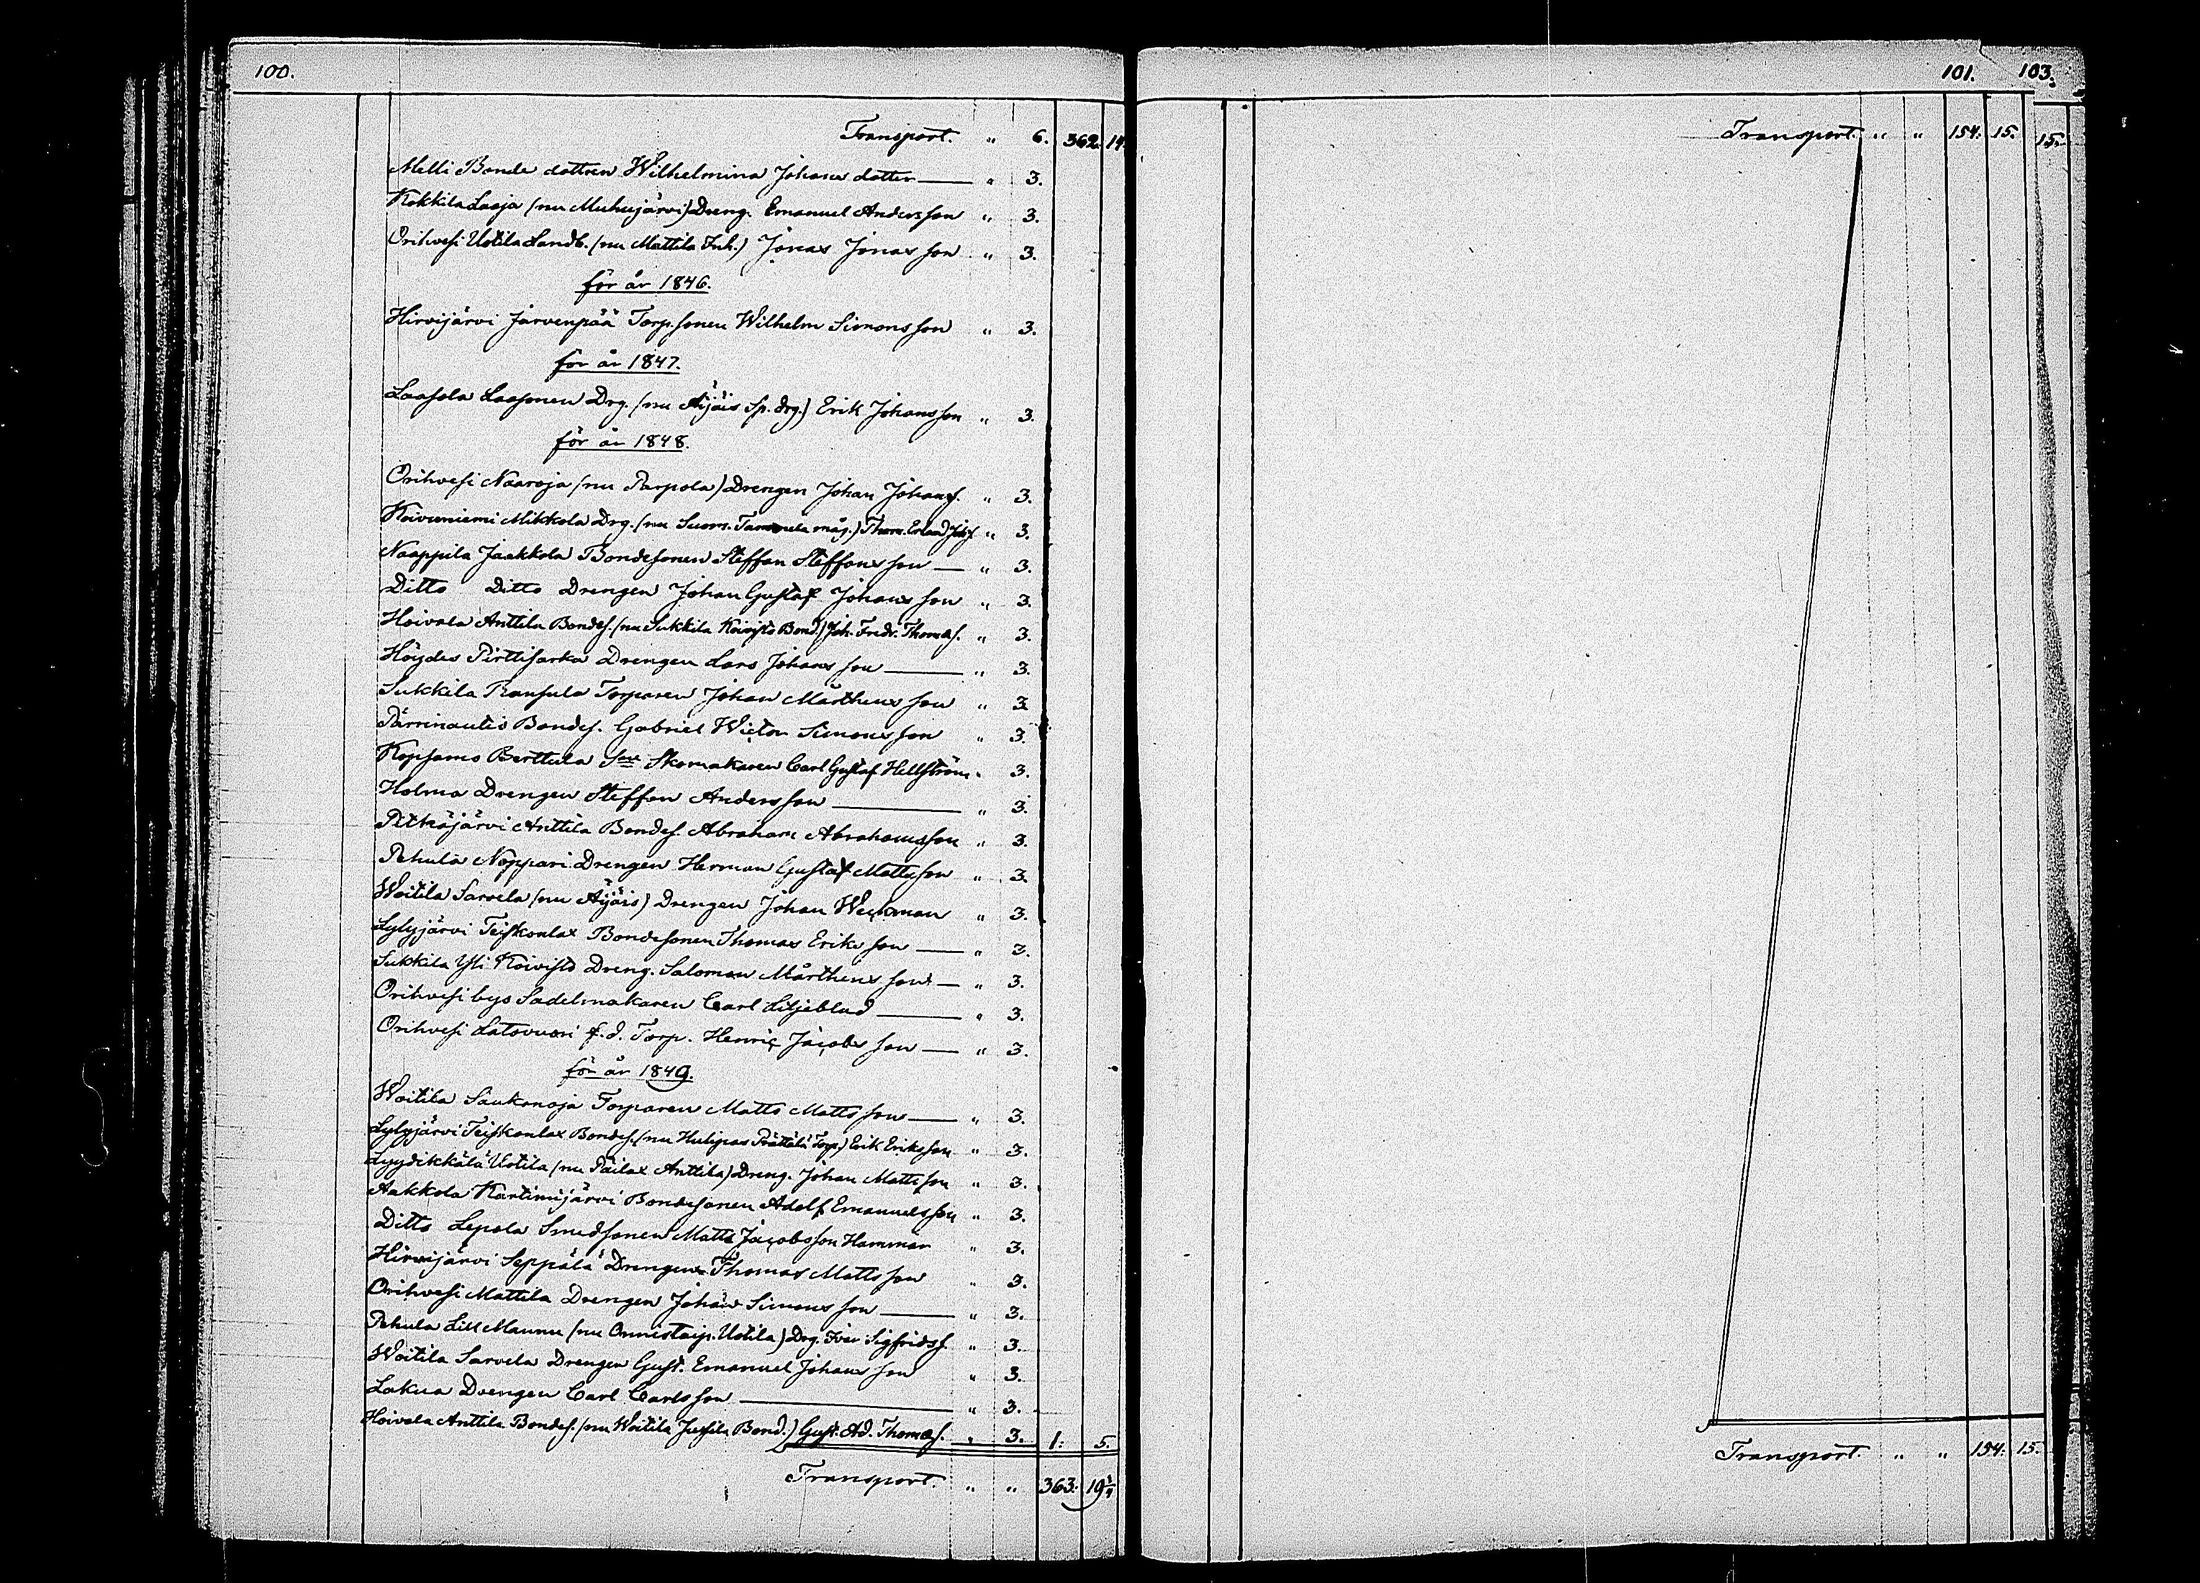 100.
Transport. " 6. 362. 14
Melli Bonde dottren Wilhelmina Johans dotter — " 3.
Kokkila Laaja (nu Muhujärvi) Dreng. Emanuel Andersson " 3.
Orihvesi Uotila Landb. (nu Mattila Inh.) Jonas Jonasson " 3.
för år 1846.
Hirvijärvi Jarvenpää Torp.sonen Wilhelm Simonsson " 3.
för år 1847.
Laasola Laasonen Drg. (nu Äijäis Sp. drg.) Erik Johansson " 3.
för år 1848.
Orihvesi Naaroja (nu Parpola) Drengen Johan Johans. " 3.
Koivuniemi Mikkola Drg. (nu Suom. Tammela måg.) Thom. " 3.
Naappila Jaakkola Bondesonen Steffan Steffansson — " 3.
Ditto Ditto Drengen Johan Gustaf Johansson " 3.
Hoivala Anttila Bondes. (nu Sukkila Koivisto Bond.) Joh. Fredr. Thomas. " 3.
Höydes Pirttisarka Drengen Lars Johansson — " 3.
Sukkila Ransula Torparen Johan Mårthensson " 3
Pärrinautis Bondes. Gabriel Wictor Simonsson " 3.
Kopsamo Berttula Skomakaren Carl Gustaf Hellström " 3.
Holma Drengen Steffan Andersson — " 3.
Pitkäjärvi Anttila Bondes. Abraham Abrahamsson " 3.
Pehula Noppari Drengen Herman Gustaf Mattsson " 3.
Woitila Sarvela (nu Äijäis) Drengen Johan Weckman " 3.
Lylyjärvi Teiskonlax Bondesonen Thomas Eriksson — " 3.
Sukkila Yli Koivisto Dreng. Salomon Mårthensson — " 3.
Orihvesi bys Sadelmakaren Carl Liljeblad — " 3.
Orihvesi Latovuori f.d. Torp. Henric Jacobsson — " 3.
för år 1849.
Woitila Saukonoja Torparen Matts Mattsson — " 3.
Lylyjärvi Teiskonlax Bondes. (nu Hulipas Prättälä Torp.) Erik Eriksson " 3.
Lyydikkälä Uotila (nu Päilax Anttila) Dreng. Johan Mattsson " 3.
Aakkola Kartimijärvi Bondesonen Adolf Emanuelsson " 3.
Ditto Lepola Smedsonen Matts Jacobsson Hammar " 3.
Hirvijärvi Seppälä Drengen Thomas Mattsson " 3.
Orihvesi Mattila Drengen Johan Simonsson — " 3.
Pehula Lill Maunu (nu Onnistaip. Uotila) Drg. Ivar Sigfridss. " 3.
Woitila Sarvela Drengen Gust. Emanuel Johansson " 3.
Lakua Drengen Carl Carlsson — " 3.
Hoivala Anttila Bondes. (nu Woitila Jussila Bond.) Gust. Ad. Thomas. " 3. 1: 5.
Transport. " " 363: 19 1/4
101.
103.
Transport. " " 154: 15.
15.
Transport. " " 154: 15.